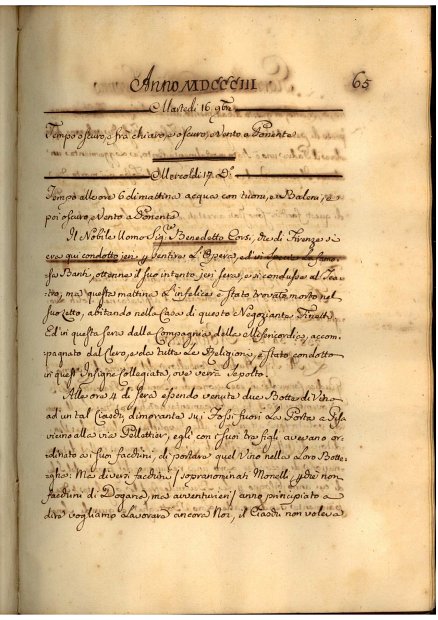 Anno MDCCCIII
65
Martedi 16. 9bre
Tempo oscuro, e frà chiaro, e oscuro, e Vento a Ponente
Mercoldi 17. Do.
Tempo alle ore 6 di mattina acqua con tuoni, e Baleni, e
poi oscuro, e Vento a Ponente
Il Nobile Uomo Sigre. Benedetto Corsi, che di Firenze si
era qui condotto jeri Sentire L'Opera, ed in La famo
sa Banti, ottenne il suo intento jeri sera, e si condusse al Tea
tro; ma questa mattina L'infelice è stato trovato morto nel
suo Letto, abitando nella Casa di questo Negoziante
Ed in questa sera dalla Compagnia della Misericordia, accom
pagnato dal Clero, e da tutte Le Religioni, è stato condotto
in quest' Insigne Collegiata, ove verrà Sepolto.
Alle ore 4 di sera essendo venute due Botte di Vino
ad un tal dimorante su i Fossi fuori La Porta a Pisa
vicino alla via Pellettier, egli con i suoi tre figli avevano or
dinato a i suoi facchini, di portare quel Vino nella Loro Botte
ga: Ma diversi facchini / sopranominati Monelli, che non
facchini di Dogana, ma avventurieri / anno principiato a
dire vogliamo Lavorare ancora Noi, il non voleva